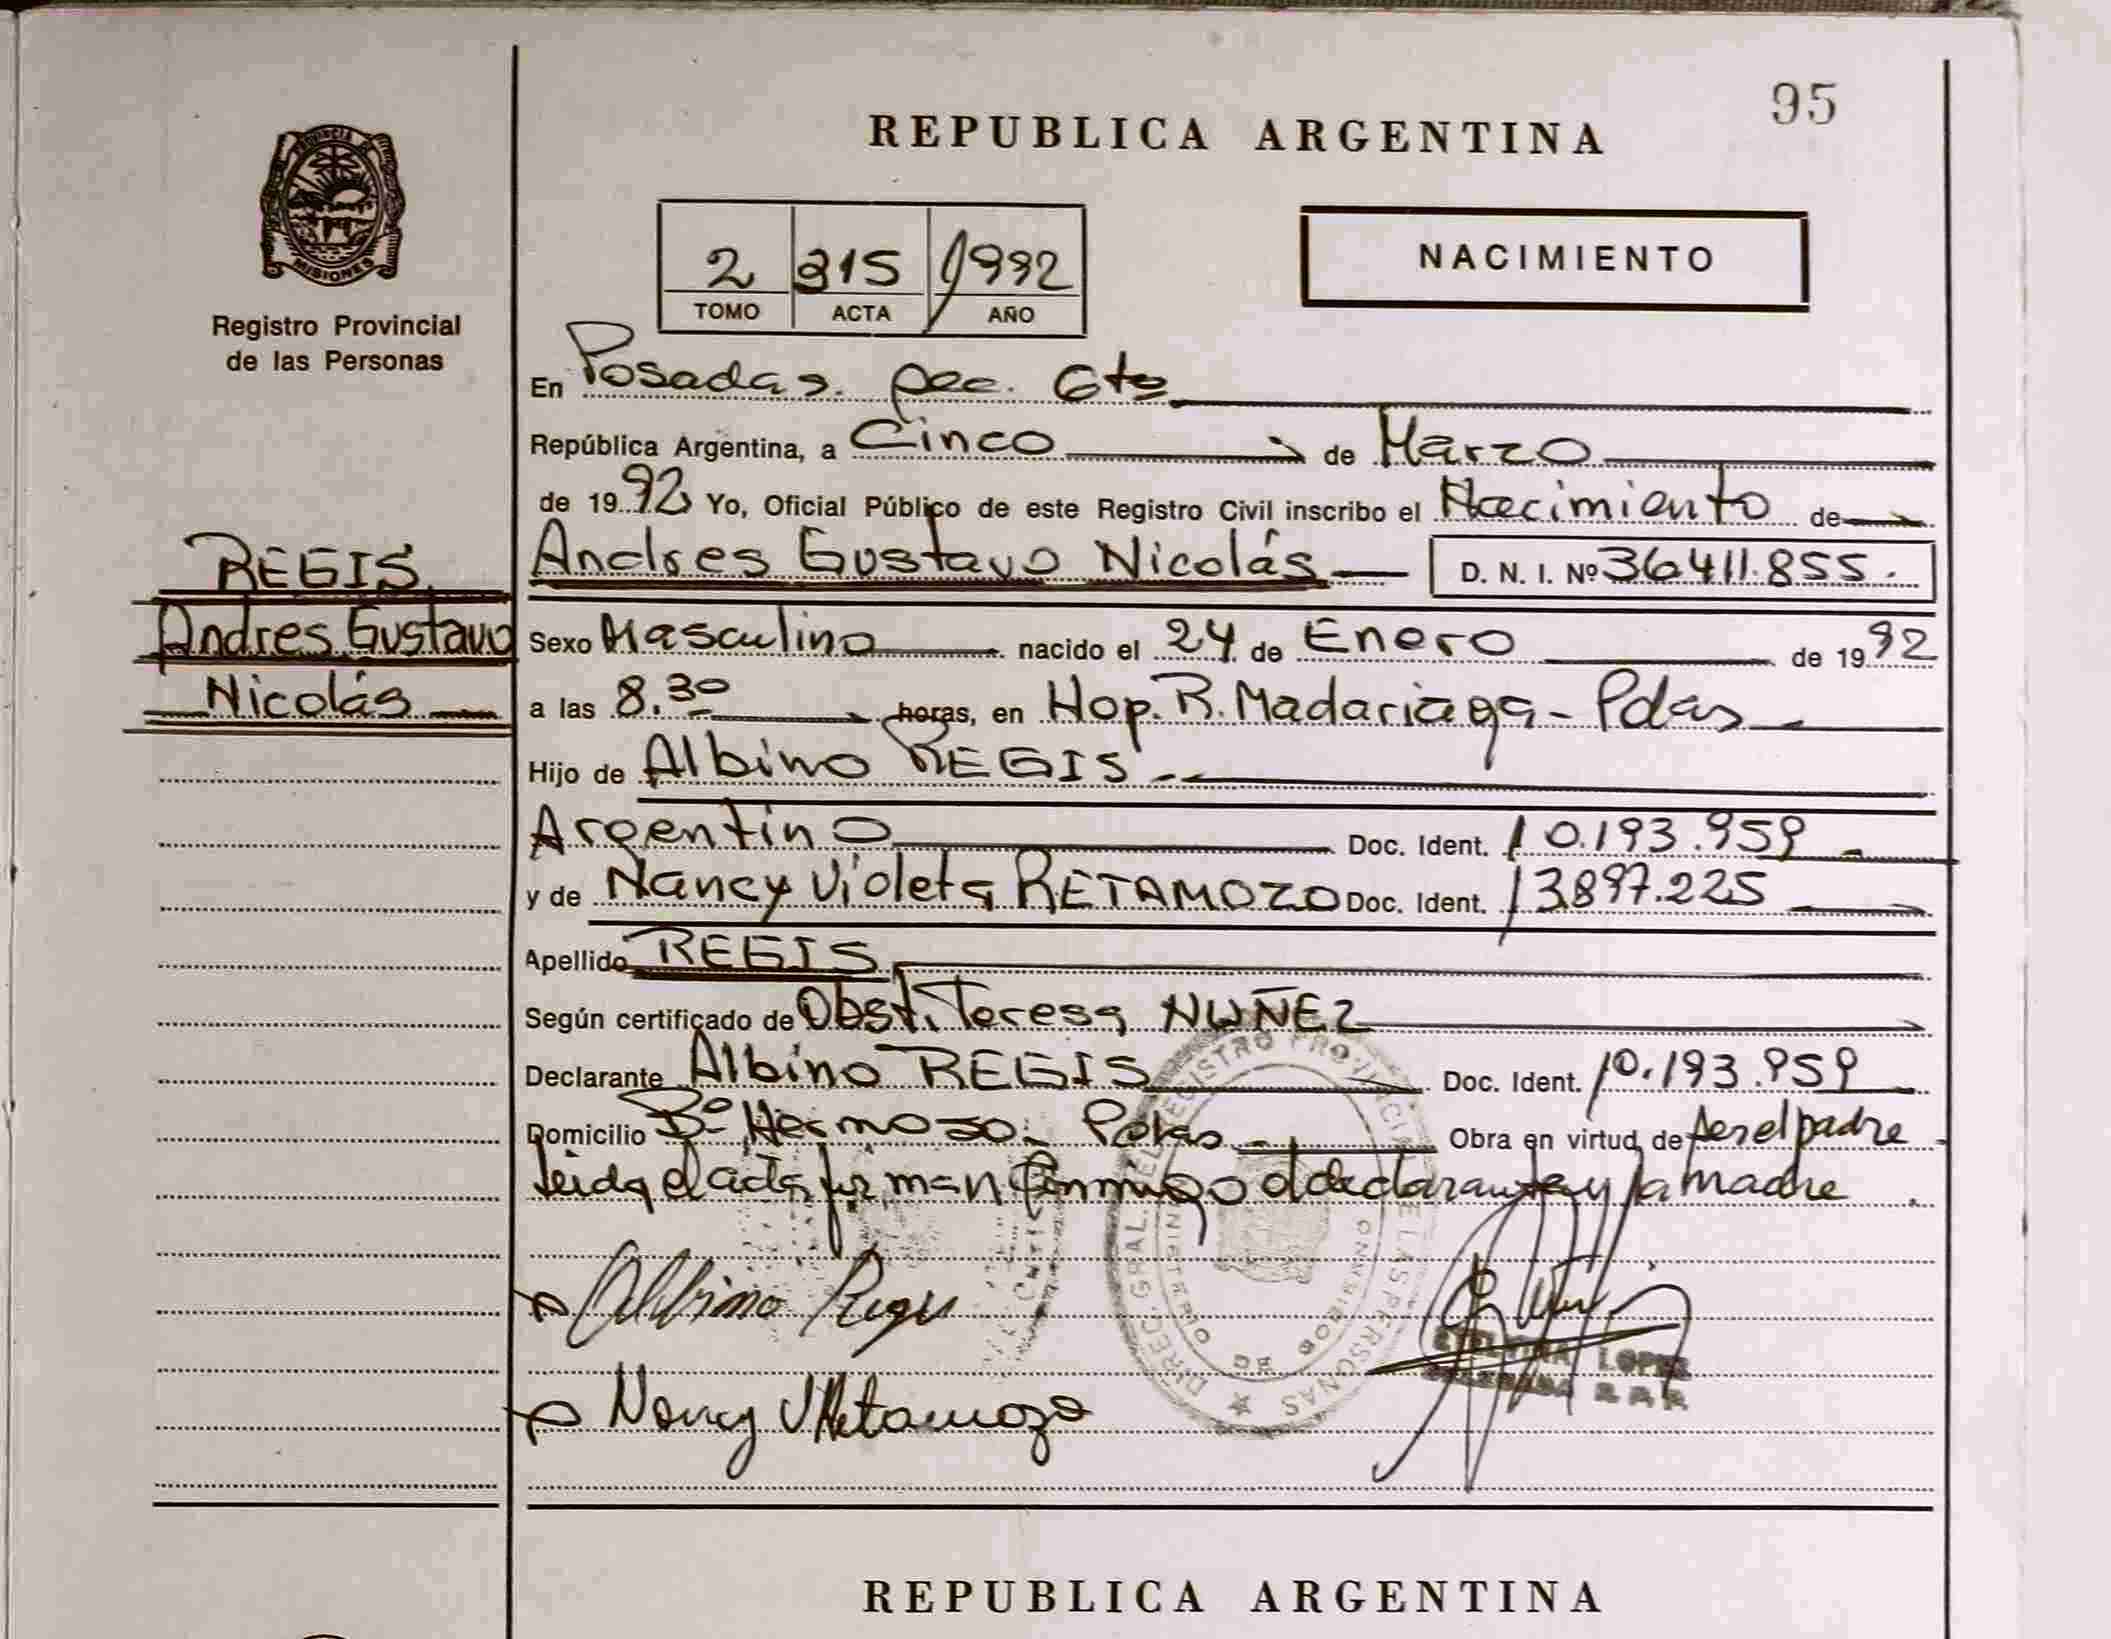 95
REPUBLICA ARGENTINA
PROVINCIA DE
MISIONES
Registro Provincial
de las Personas
2 315 1992
TOMO ACTA AÑO
NACIMIENTO
En Posadas. Sec. 6ta
República Argentina, a Cinco de Marzo
de 1992 Yo, Oficial Público de este Registro Civil inscribo el Nacimiento de
REGIS
Andres Gustavo
Nicolás
Andres Gustavo Nicolás D. N. I. Nº 36411.855.
Sexo Masculino nacido el 24 de Enero de 1992
a las 8.30 horas, en Hop. R. Madariaga - Pdas
Hijo de Albino REGIS
Argentino Doc. Ident. 10.193.959
y de Nancy Violeta RETAMOZO Doc. Ident. 13.897.225
Apellido REGIS
Según certificado de Obst. Teresa NUÑEZ
Declarante Albino REGIS Doc. Ident. 10.193.959
Domicilio Bº Hermoso. Pdas Obra en virtud de ser el padre
leida el acta firman conmigo el declarante y la madre
Albino Regis
Nancy V Retamozo
DIREC. GRAL. DEL REGISTRO PROVINCIAL DE LAS PERSONAS
LOPEZ
REPUBLICA ARGENTINA